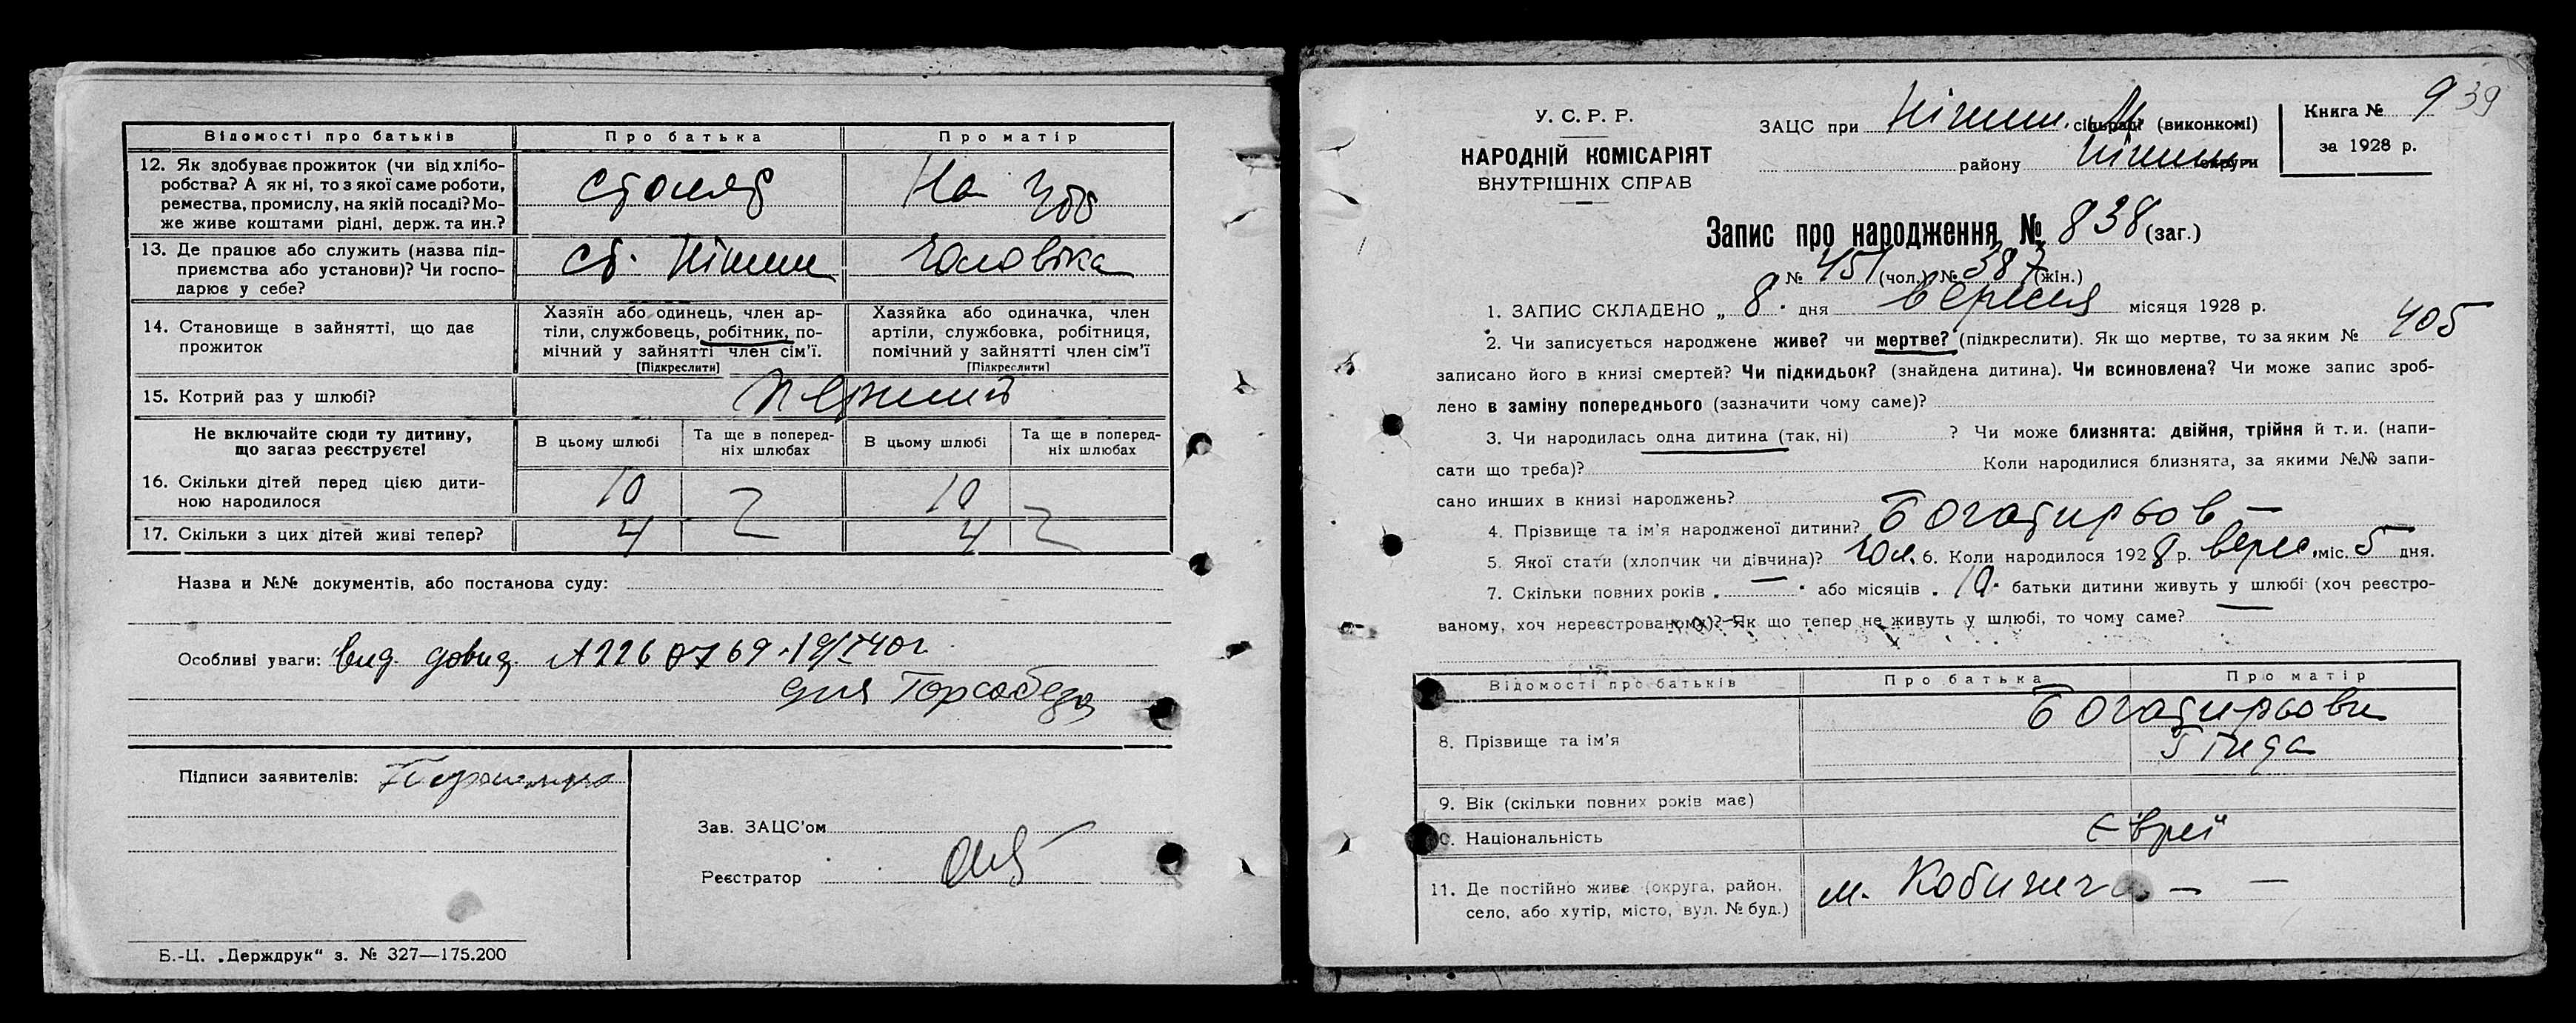 Відомості про батьків
Про батька
Про матір
12. Як здобуває прожиток (чи від хлібо-
робства? А як ні, то з якої саме роботи,
ремества, промислу, на якій посаді? Мо-
же живе коштами рідні, держ. та ин.?
столяр
На
13. Де працює або служить (назва під-
приємства або установи)? Чи госпо-
дарює у себе?
ст. Ніжин
чоловіка
14. Становище в зайнятті, що дає
прожиток
Хазяїн або одинець, член ар-
тіли, службовець, робітник, по-
мічний у зайнятті член сім'ї.
[Підкреслити]
Хазяйка або одиначка, член
артіли, службовка, робітниця,
помічний у зайнятті член сім'ї
[Підкреслити]
15. Котрий раз у шлюбі?
Перший
Не включайте сюди ту дитину,
що загаз реєструєте!
В цьому шлюбі
Та ще в поперед-
ніх шлюбах
В цьому шлюбі
Та ще в поперед-
ніх шлюбах
16. Скільки дітей перед цією дити-
ною народилося
10
10
17. Скільки з цих дітей живі тепер?
4
4
Назва и №№ документів, або постанова суду:
Особливі уваги: вид. довид.
для Горсобеза
Підписи заявителів:
Зав. ЗАЦС'ом
Реєстратор
Б.-Ц. „Держдрук“ з. № 327—175.200
У. С. Р. Р.
НАРОДНІЙ КОМІСАРІЯТ
ВНУТРІШНІХ СПРАВ
ЗАЦС при Ніжин. сільраді (виконкомі)
району Ніжин округи
Книга № 9
за 1928 р.
39
Запис про народження № 838 (заг.)
№ 451 (чол.) № 387 (жін.)
1. ЗАПИС СКЛАДЕНО „ 8 " дня вересня місяця 1928 р.
2. Чи записується народжене живе? чи мертве? (підкреслити). Як що мертве, то за яким № 405
записано його в книзі смертей? Чи підкидьок? (знайдена дитина). Чи всиновлена? Чи може запис зроб-
лено в заміну попереднього (зазначити чому саме)?
3. Чи народилась одна дитина (так, ні) ? Чи може близнята: двійня, трійня й т. и. (напи-
сати що треба)? Коли народилися близнята, за якими №№ запи-
сано инших в книзі народжень?
4. Прізвище та ім'я народженої дитини? Богатирьов —
5. Якої стати (хлопчик чи дівчина)? чол. 6. Коли народилося 1928 р. верес. міс. 5 дня.
7. Скільки повних років „ — " або місяців „ 10 " батьки дитини живуть у шлюбі (хоч реєстро-
ваному, хоч нереєстрованому)? Як що тепер не живуть у шлюбі, то чому саме?
Відомості про батьків
Про батька
Про матір
8. Прізвище та ім'я
Богатирьови
Гнеда
9. Вік (скільки повних років має)
10. Національність
Євреї
11. Де постійно живе (округа, район,
село, або хутір, місто, вул. № буд.)
м. Кобижча — —